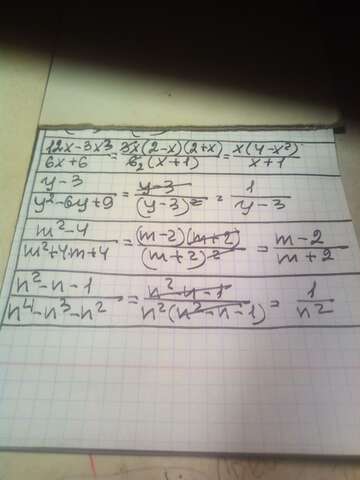 12x-3x³/6x+6 = 3x(2-x)(2+x)/6₂(x+1) = x(4-x²)/x+1
y-3/y²-6y+9 = y-3/(y-3)² = 1/y-3
m²-4/m²+4m+4 = (m-2)(m+2)/(m+2)² = m-2/m+2
n²-n-1/n⁴-n³-n² = n²-n-1/n²(n²-n-1) = 1/n²